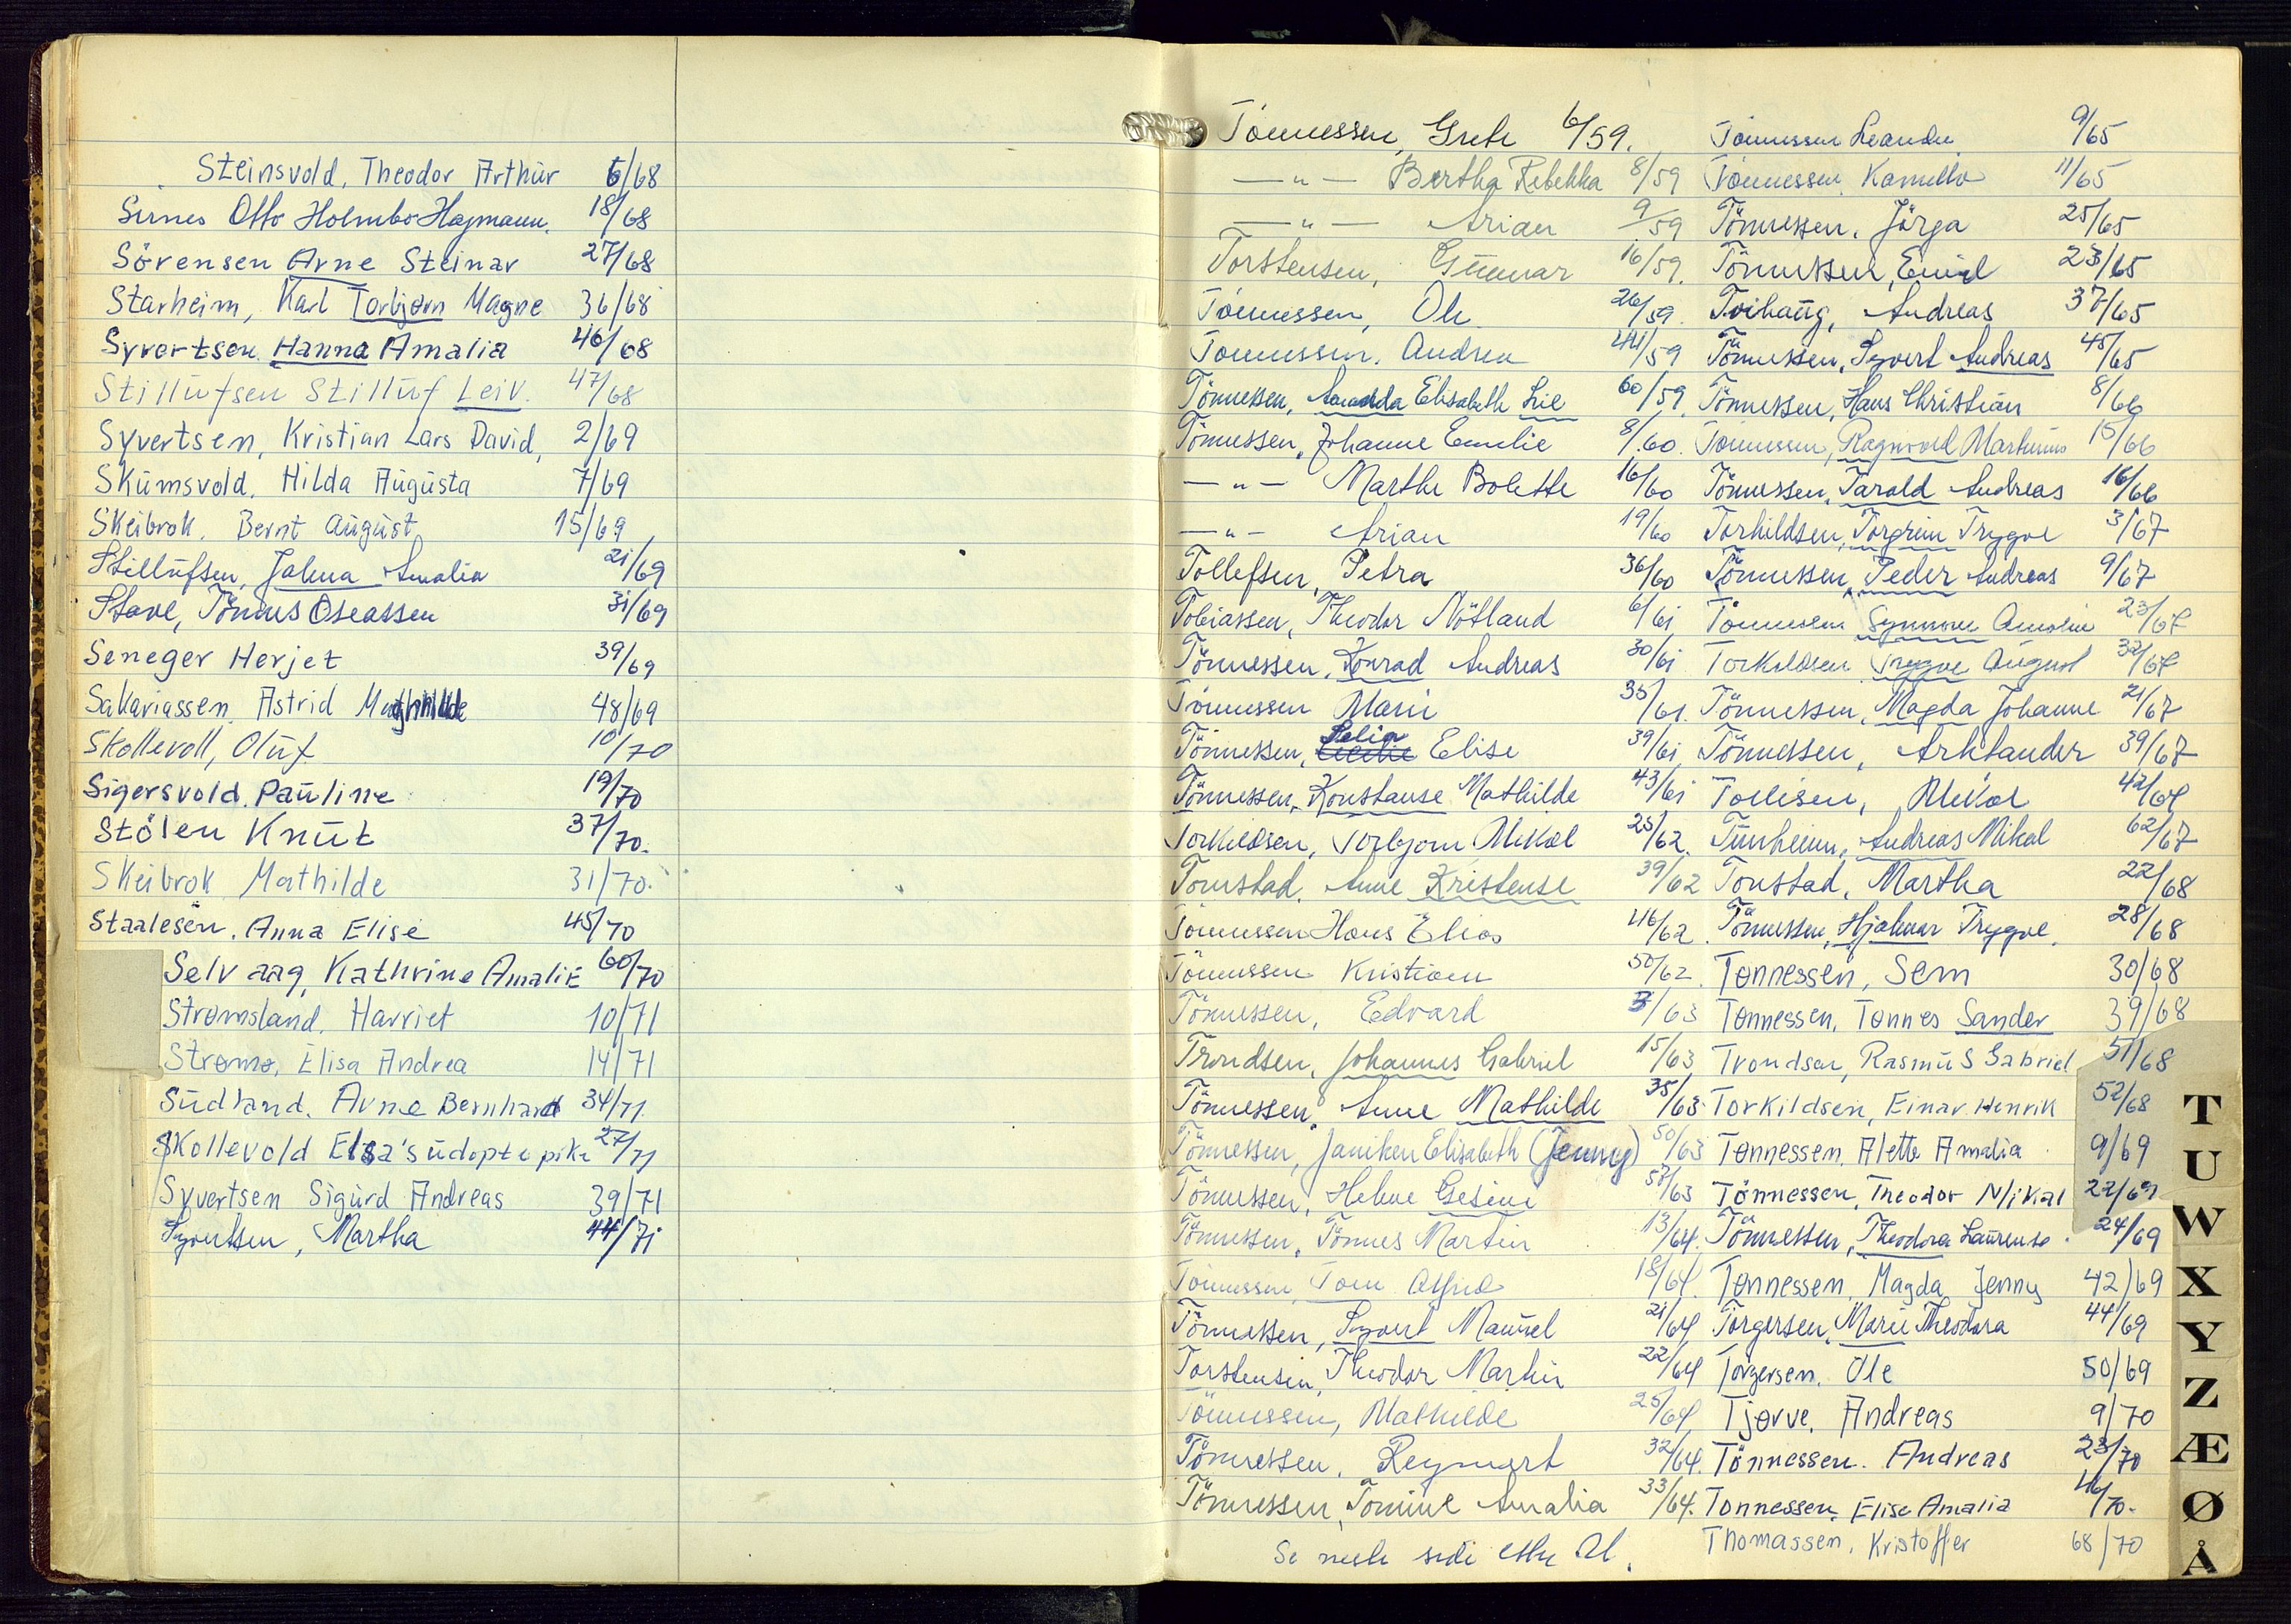 Steinsvold, Theodor Arthur 6/68
Sirnes Otto Holmbo Hagmann. 18/68
Sörensen Arne Steinar 27/68
Starheim, Karl Torbjørn Magne 36/68
Syvertsen. Hanna Amalia 46/68
Stillufsen Stilluf Leiv. 47/68
Syvertsen, Kristian Lars David, 2/69
Skumsvold, Hilda Augusta 7/69
Skeibrok. Bernt August 15/69
Stillufsen, Jalma Amalia 21/69
Stave, Tönnes Oseassen 31/69
Seneger Herjet 39/69
Sakariassen. Astrid Mathilde 48/69
Skollevoll, Oluf 10/70
Sigersvold. Pauline 19/70
Stölen Knut 37/70.
Skeibrok Mathilde 31/70.
Staalesen. Anna Elise 45/70
Selvaag, Kathrine Amalie 60/70
Strømsland. Harriet 10/71
Strømø, Elisa Andrea 14/71
Sudland. Arne Bernhard 34/71
Skollevold Elsa's udøpte pike 27/71
Syvertsen Sigurd Andreas 39/71
Syvertsen, Martha 44/71
Tönnessen, Grete 6/59.
—"— Bertha Rebekka 8/59
—"— Arian 9/59
Torstensen, Gunnar 16/59.
Tönnessen, Ole 26/59.
Tönnessen, Andrea 44/59
Tönnessen, Amanda Elisabeth Lie 60/59
Tönnessen, Johanne Emilie 8/60.
—"— Marthe Bolette 16/60
—"— Arian 19/60
Tollefsen, Petra 36/60
Tobiassen, Theodor Nötland 6/61
Tönnessen, Konrad Andreas 30/61
Tönnessen Marie 35/61.
Tönnessen, Selia Elise 39/61
Tönnessen, Konstanse Mathilde 43/61
Torkildsen, Torbjørn Mikal 25/62.
Tomstad, Anne Kristense 39/62
Tönnessen Hans Elias 46/62
Tönnessen Kristian 50/62
Tönnessen, Edvard 3/63
Trondsen, Johannes Gabriel 15/63
Tönnessen, Anne Mathilde 35/63
Tönnessen, Janiken Elisabeth (Jenny) 50/63
Tönnessen, Helene Gesine 57/63
Tönnessen, Tönnes Martin 13/64.
Tönnessen, Tom Alfred 18/64.
Tönnessen, Syvert Manuel 21/64
Torstensen, Theodor Martin 22/64
Tönnessen, Mathilde 25/64
Tönnessen, Reymert 32/64.
Tönnessen, Tomine Amalia 33/64.
Se neste side etter Al.
Tönnessen Leander 9/65
Tönnessen, Kamillo 11/65
Tönnessen, Jörga 25/65
Tönnessen, Emil 23/65
Toihaug, Andreas 37/65
Tönnessen, Syvert Andreas 45/65
Tönnessen, Hans Christian 8/66
Tönnessen, Ragnvald Martinius 15/66
Tönnessen, Tarald Andreas 16/66
Torkildsen, Torgrim Trygve 3/67
Tönnessen, Peder Andreas 9/67
Tönnessen Synnøve Amalie 23/67
Torkildsen Trygve August 32/67
Tönnessen, Magda Johanne 21/67
Tönnessen, Arktander 39/67
Tollisen, Mikal 42/67
Tunheim, Andreas Mikal 62/67
Tonstad, Martha 22/68
Tönnessen, Hjalmar Trygve. 28/68
Tønnessen, Sem 30/68
Tønnessen, Tønnes Sander 39/68
Trondsen, Rasmus Gabriel 51/68
Torkildsen, Einar Henrik 52/68
Tønnessen, Alette Amalia 9/69
Tönnessen, Theodor Mikal 22/69
Tönnessen, Theodora Laurense. 24/69
Tønnessen, Magda Jenny 42/69
Torgersen, Marie Theodora 44/69
Torgersen. Ole 50/69
Tjørve, Andreas 9/70
Tönnessen. Andreas 23/70
Tonnessen. Elise Amalia 46/70.
Thomassen, Kristoffer 68/70
T
U
W
X
Y
Z
Æ
Ø
Å